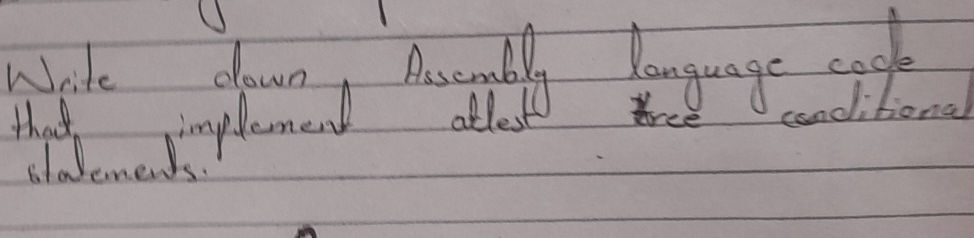 Write down Assembly language code
that implement atlest tree conditional
statements.